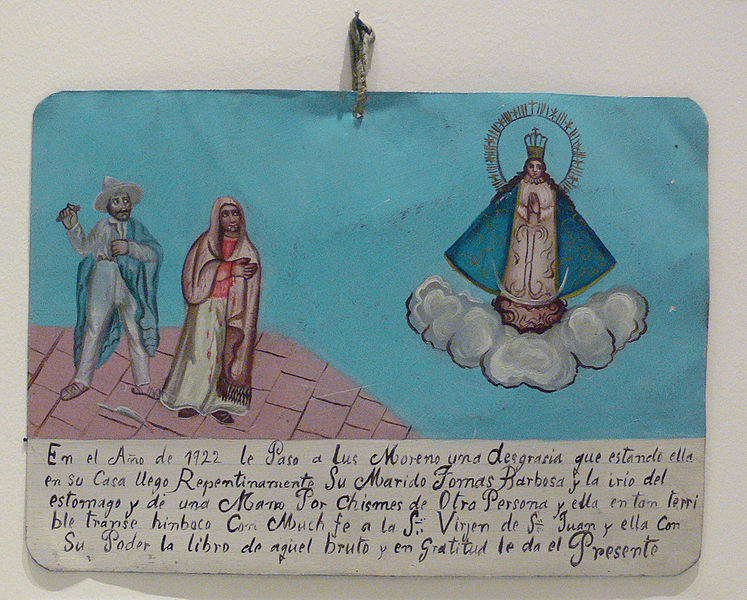 En el Año de 1922 le Paso a Lus Moreno una desgrasia que estando ella
en su Casa llego Repentinamente Su Marido Tomas Barbosa y la irio del
estomago y de una Mano Por Chismes de Otra Persona y ella en tan terri
ble transe hinboco Con Much fe a la S. Virjen de S. Juan y ella Con
Su Poder la libro de aquel bruto y en Gratitud le da el Presente